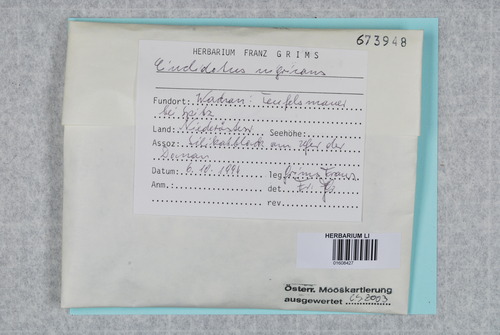 673948
HERBARIUM FRANZ GRIMS
Cinclidotus nigricans
Fundort: Wachau: Teufelsmauer
bei Spitz
Land: Niederösterr. Seehöhe:
Assoz: Silikatblock am Ufer der
Donau
Datum: 6.10.1994 leg. Grims Franz
Anm.: det. Fr. G.
rev.
HERBARIUM LI
01608427
Österr. Mooskartierung
ausgewertet 2003